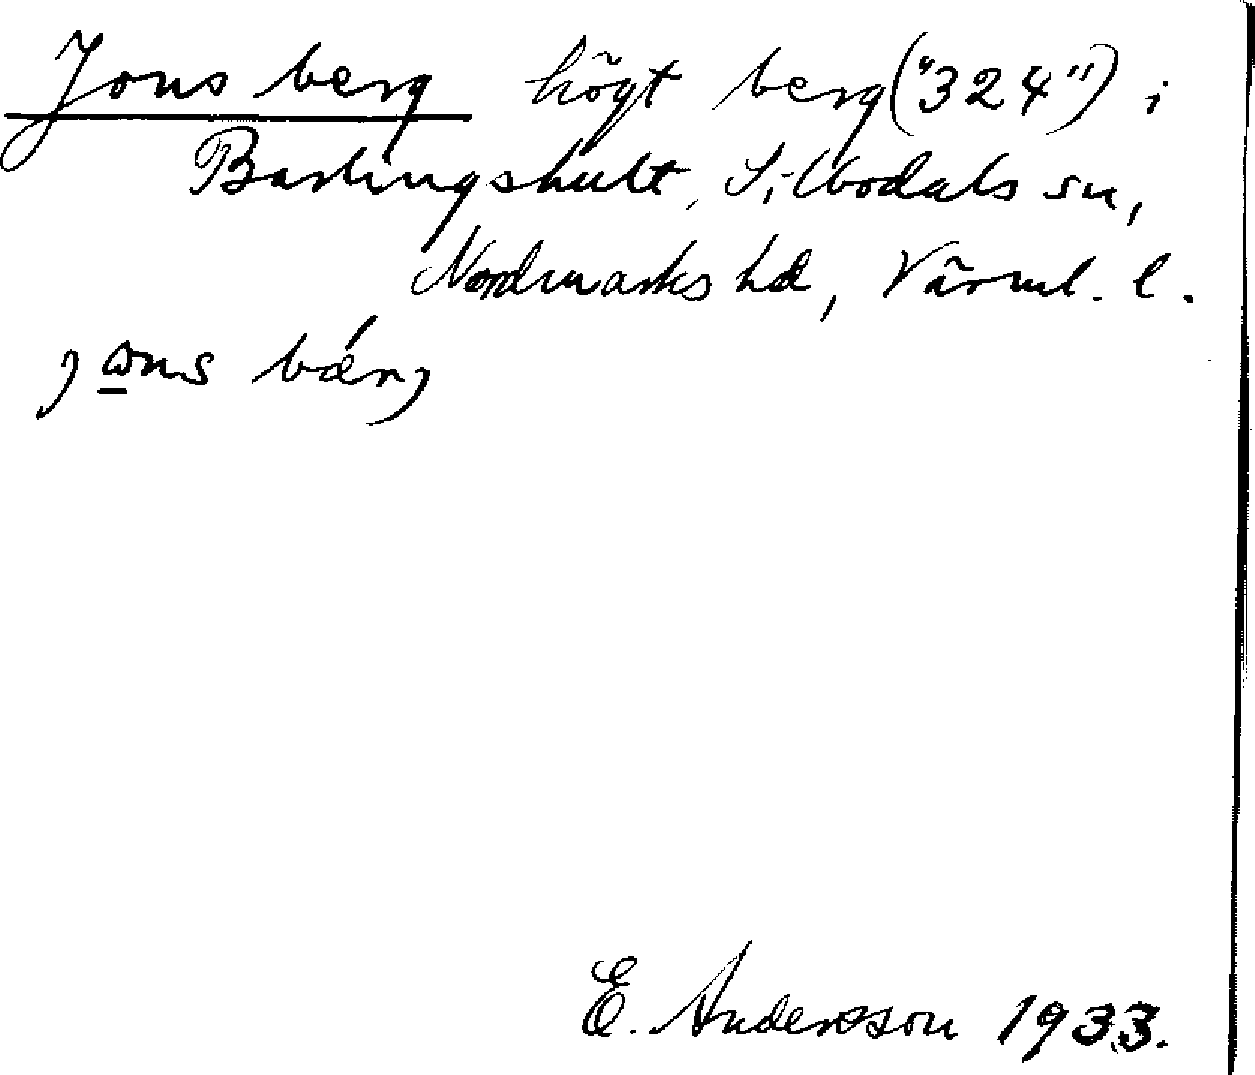 Jonsberg högt berg ("324") i
Barlingshult, Silbodals sn,
Nordmarks hd, Värml. l.
E. Andersson 1933.